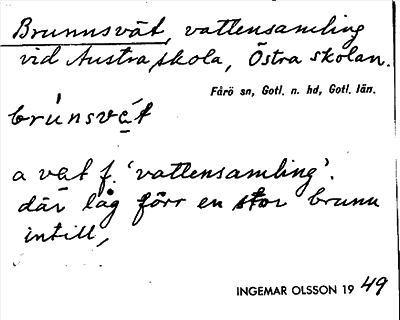 Brunnsvät, vattensamling
vid Austra skola, Östra skolan.
Fårö sn, Gotl. n. hd, Gotl. län.
brúnsvá̱t
a va̱t f. 'vattensamling'.
där låg förr en stor brunn
intill,
INGEMAR OLSSON 1949